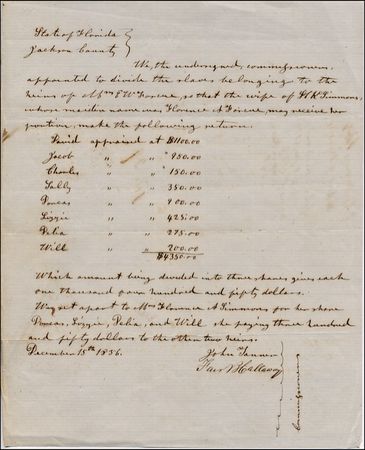 State of Florida
Jackson County
We, the undersigned, commissioners,
appointed to divide the slaves belonging to the
heirs of Mrs E W so that the wife of H K Simmons,
whose maiden name was Florence A may receive her
portion, make the following return.
David appraised at $1100.00
Jacob " " " 950.00
Charles " " " 150.00
Sally " " " 350.00
Dorcas " " " 900.00
Lizzie " " " 425.00
Delia " " " 275.00
Will " " 200.00
$4350.00
Which amount being divided into three shares gives each
one thousand four hundred and fifty dollars.
We set apart to Mrs Florence A Simmons for her share
Dorcas, Lizzie, Delia, and Will she paying three hundred
and fifty dollars to the other two heirs.
December 15th 1856.
John Tanner
Hallaway
Commissioners